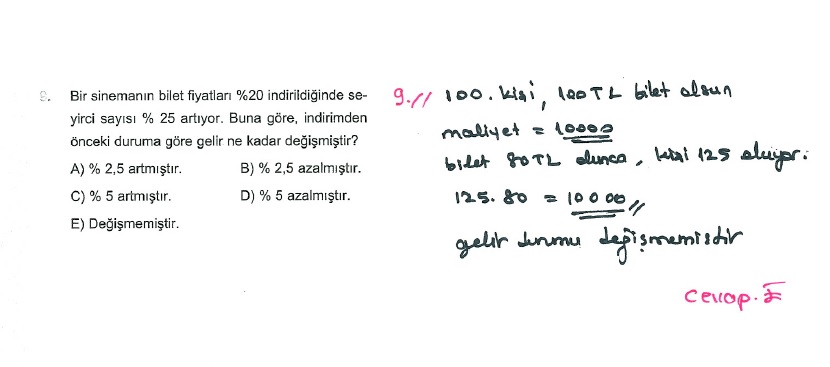 9. Bir sinemanın bilet fiyatları %20 indirildiğinde se-
yirci sayısı % 25 artıyor. Buna göre, indirimden
önceki duruma göre gelir ne kadar değişmiştir?
A) % 2,5 artmıştır. B) % 2,5 azalmıştır.
C) % 5 artmıştır. D) % 5 azalmıştır.
E) Değişmemiştir.
9.// 100. kişi, 100TL bilet olsun
maliyet = 10000
bilet 80TL olunca, kişi 125 oluyor.
125. 80 = 10000//
gelir durumu değişmemiştir
Cevap. E